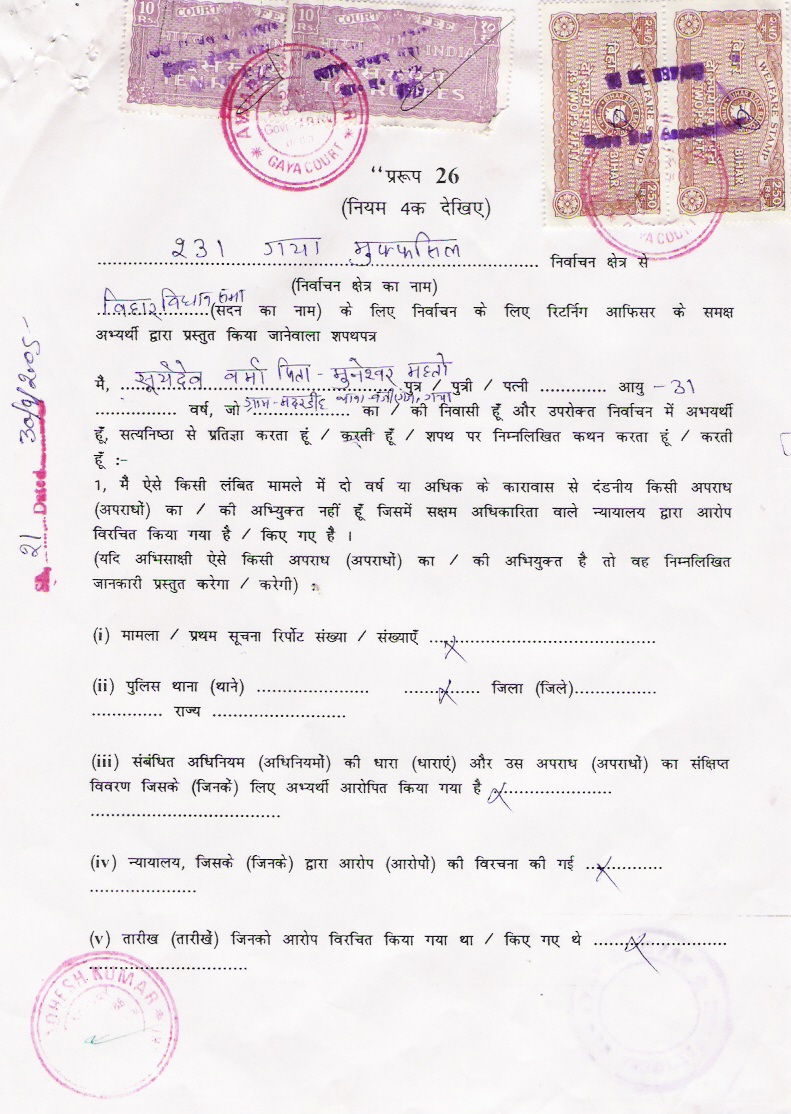 10 Rs. COURT FEE
10 Rs. COURT FEE १० रु.
भारत INDIA
TEN RUPEES
WELFARE STAMP
BIHAR
2.50
GAYA COURT
"प्ररूप 26
(नियम 4क देखिए)
231 गया मुफ्फसिल निर्वाचन क्षेत्र से
(निर्वाचन क्षेत्र का नाम)
बिहार विधान सभा (सदन का नाम) के लिए निर्वाचन के लिए रिटर्निग आफिसर के समक्ष
अभ्यर्थी द्वारा प्रस्तुत किया जानेवाला शपथपत्र
मै, सूर्यदेव वर्मा पिता - मुनेश्वर महतो पुत्र / पुत्री / पत्नी ............. आयु - 31
............... वर्ष, जो ग्राम - गया का / की निवासी हूँ और उपरोक्त निर्वाचन में अभयर्थी
हूँ, सत्यनिष्ठा से प्रतिज्ञा करता हूं / करती हूँ / शपथ पर निम्नलिखित कथन करता हूं / करती
हूँ :-
1, मै ऐसे किसी लंबित मामले में दो वर्ष या अधिक के कारावास से दंडनीय किसी अपराध
(अपराधों) का / की अभ्यिुक्त नहीं हूँ जिसमें सक्षम अधिकारिता वाले न्यायालय द्वारा आरोप
विरचित किया गया है / किए गए है ।
(यदि अभिसाक्षी ऐसे किसी अपराध (अपराधों) का / की अभियुक्त है तो वह निम्नलिखित
जानकारी प्रस्तुत करेगा / करेगी) :
(i) मामला / प्रथम सूचना रिर्पोट संख्या / संख्याएँ ........................................
(ii) पुलिस थाना (थाने) .................... ............. जिला (जिले)...............
............. राज्य ........................
(iii) संबंधित अधिनियम (अधिनियमों) की धारा (धाराएं) और उस अपराध (अपराधों) का संक्षिप्त
विवरण जिसके (जिनकें) लिए अभ्यर्थी आरोपित किया गया है ......................
..................................
(iv) न्यायालय, जिसके (जिनके) द्वारा आरोप (आरोपों) की विरचना की गई ..............
...................
(v) तारीख (तारीखें) जिनको आरोप विरचित किया गया था / किए गए थे ........................
............................
21 Dated 30/9/2005
KUMAR